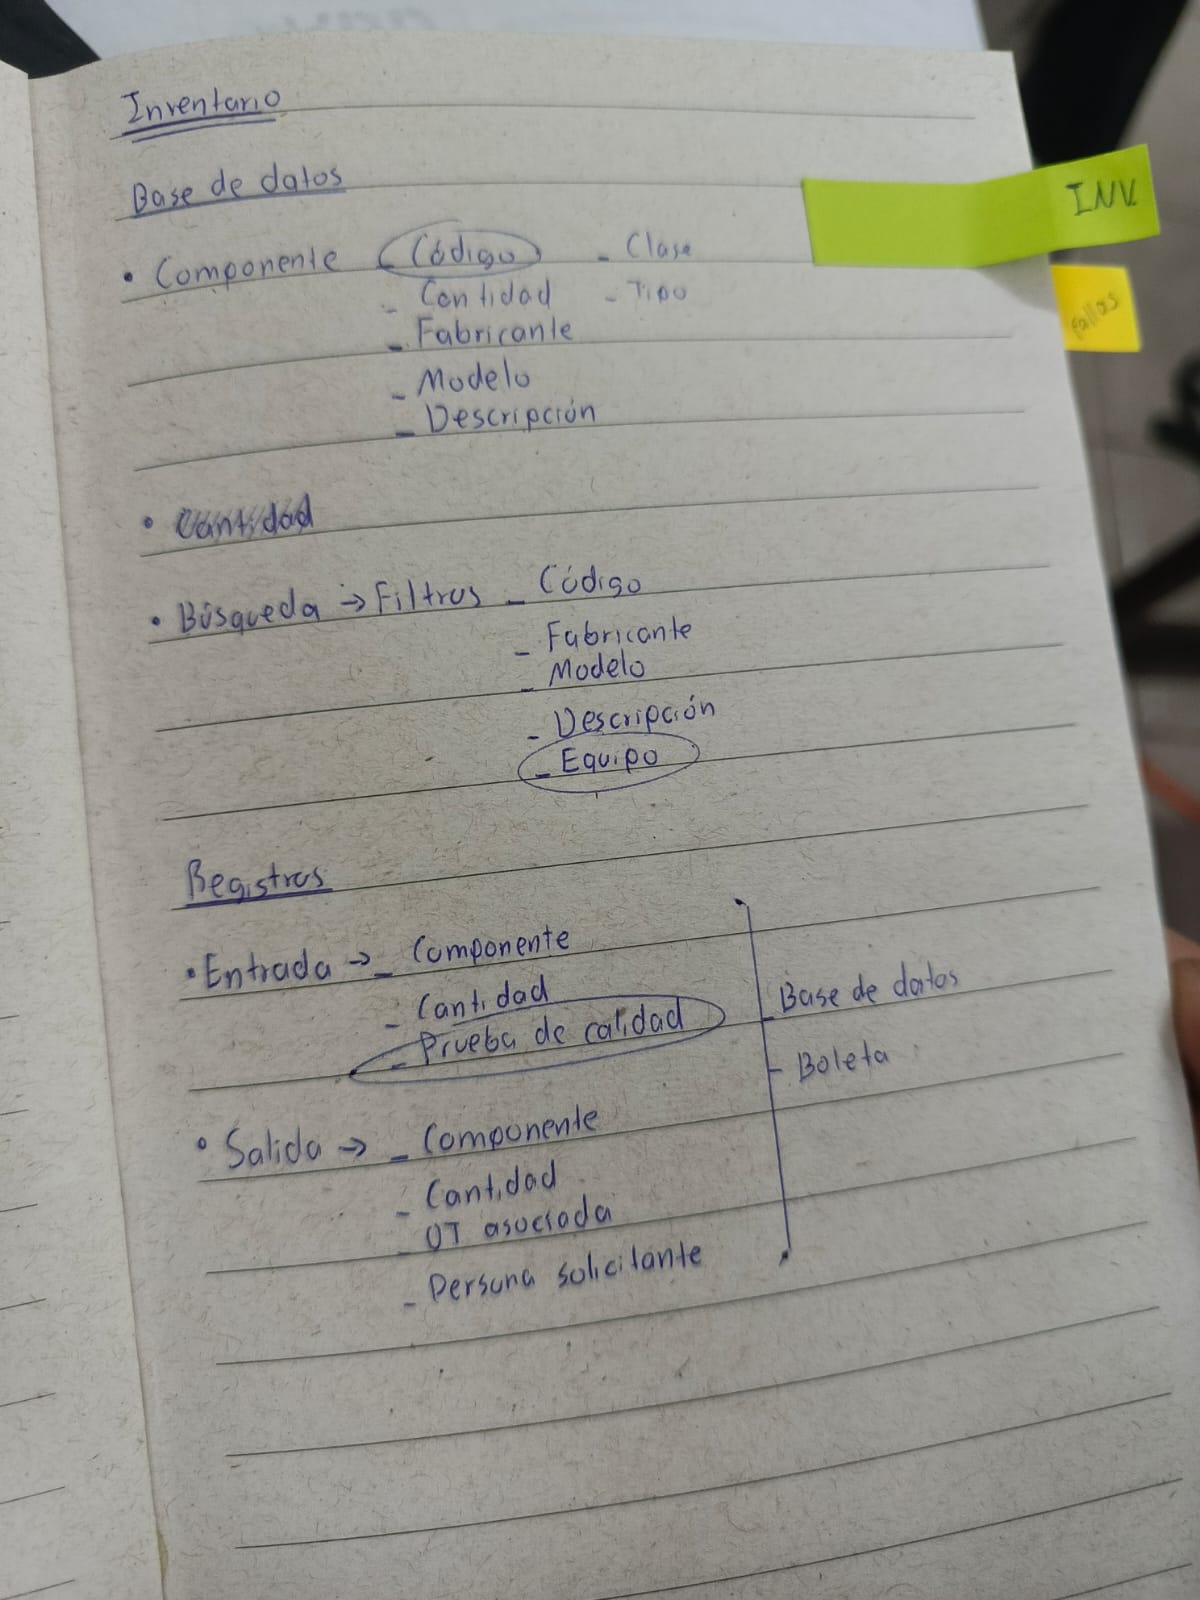 Inventario
Base de datos
INV.
• Componente - Código - Clase
- Cantidad - Tipo
- Fabricante
fallas
- Modelo
- Descripción
• Cantidad
• Búsqueda → Filtros - Código
- Fabricante
- Modelo
- Descripción
- Equipo
Registros
• Entrada → - Componente
- Cantidad
- Base de datos
- Prueba de calidad
- Boleta
• Salida → - Componente
- Cantidad
- OT asociada
- Persona solicitante